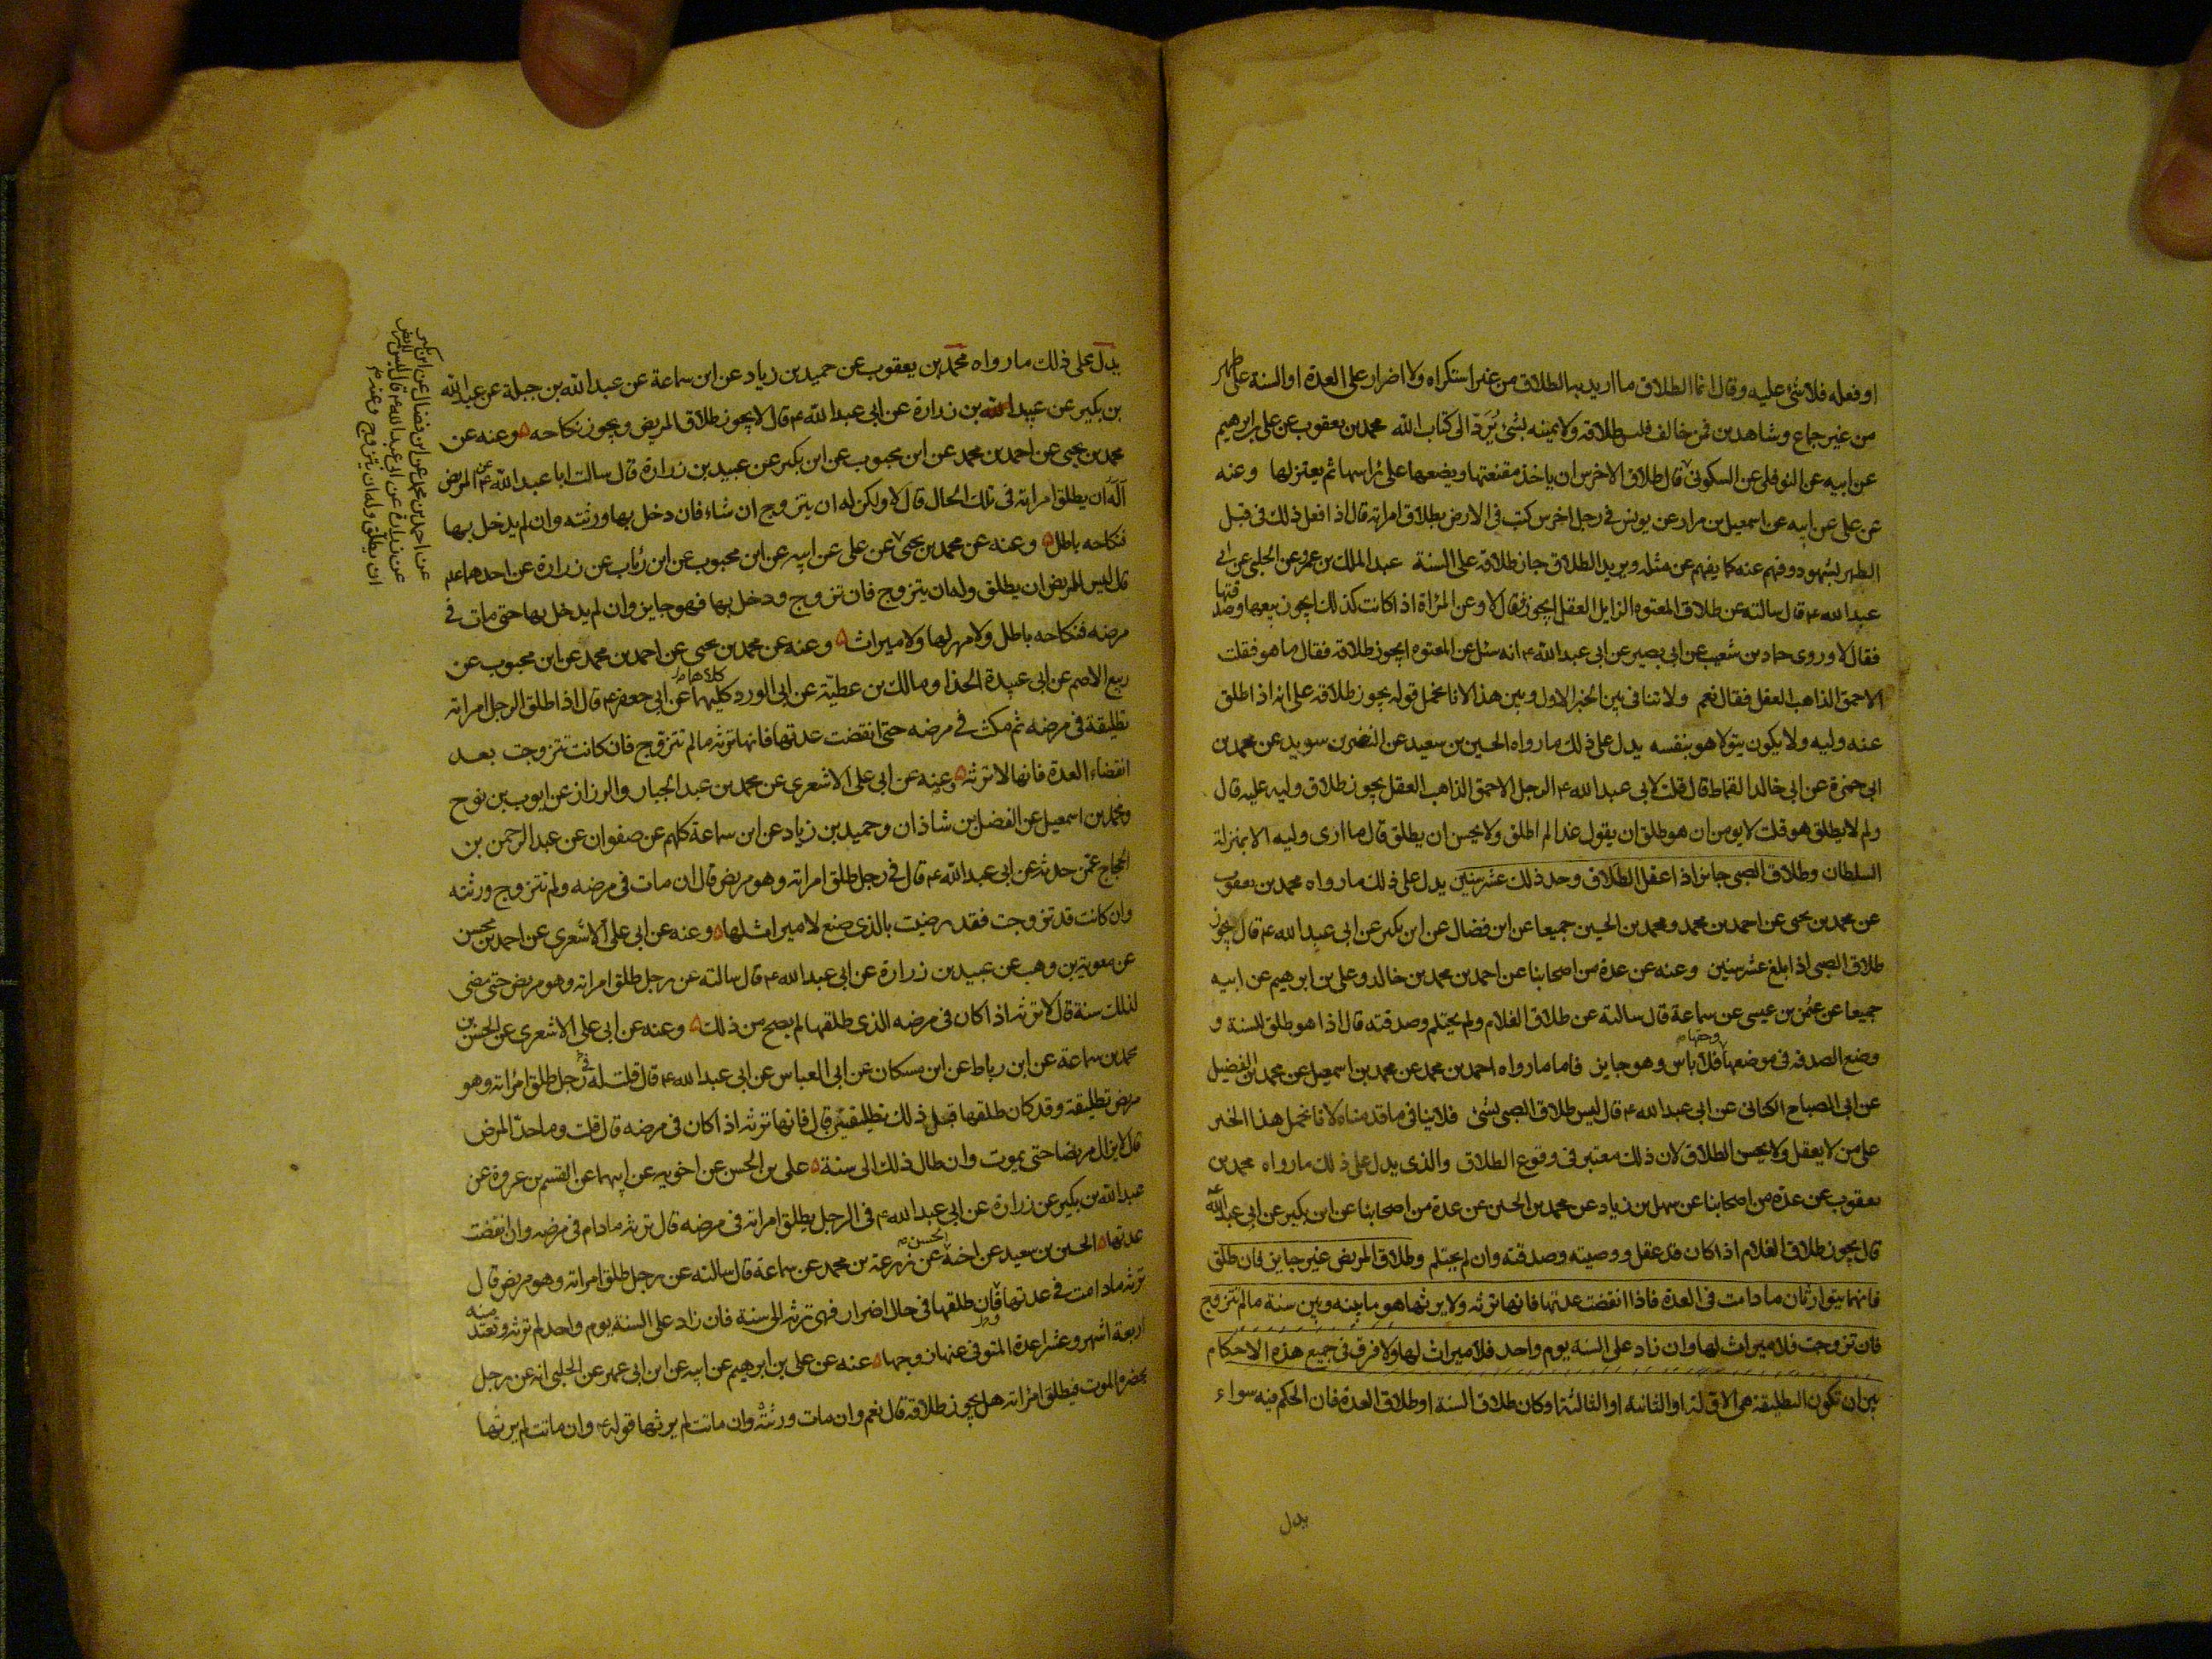 او فعله فلا شئ عليه وقال انما الطلاق ما اريد به الطلاق من غير استكراه ولا اضرار على العدة او السنة على طهر
من غير جماع وشاهدين فمن خالف فليس طلاقه ولا يمينه بشئ يُرَدّ الى كتاب الله محمد بن يعقوب عن على بن ابرهيم
عن ابيه عن النوفلى عن السكونى قال طلاق الاخرس ان ياخذ مقنعتها ويضعها على راسها ثم يعتزلها وعنه
عن على عن ابيه عن اسمعيل بن مرار عن يونس فى رجل اخرس كتب فى الارض بطلاق امراته قال اذا فعل ذلك فى قبل
الطهر بشهود وفهم عنه كما يفهم عن مثله ويريد الطلاق جاز طلاقه على السنة عبد الملك بن عمرو عن الحلبى عن ابى
عبد الله ع قال سالته عن طلاق المعتوه الزايل العقل ايجوز فقال لا وعن المراة اذا كانت كذلك ايجوز بيعها وصدقتها
فقال لا وروى حماد بن شعيب عن ابى بصير عن ابى عبد الله ع انه سئل عن المعتوه ايجوز طلاقه فقال ما هو فقلت
الاحمق الذاهب العقل فقال نعم ولا تنافى بين الخبر الاول وبين هذا لانا نحمل قوله يجوز طلاقه على انه اذا طلق
عنه وليه ولا يكون يتولا هو بنفسه يدل على ذلك ما رواه الحسين بن سعيد عن النضر بن سويد عن محمد بن
ابى حمزة عن ابى خالد القماط قال قلت لابى عبد الله ع الرجل الاحمق الذاهب العقل يجوز طلاق وليه عليه قال
ولم لا يطلق هو قلت لا يومن ان هو طلق ان يقول غدا لم اطلق ولا يحسن ان يطلق قال ما ارى وليه الا بمنزلة
السلطان وطلاق الصبى جايز اذا عقل الطلاق وحد ذلك عشر سنين يدل على ذلك ما رواه محمد بن يعقوب
عن محمد بن يحيى عن احمد بن محمد ومحمد بن الحسين جميعا عن ابن فضال عن ابن بكير عن ابى عبد الله ع قال يجوز
طلاق الصبى اذا بلغ عشر سنين وعنه عن عدة من اصحابنا عن احمد بن محمد بن خالد وعلى بن ابرهيم عن ابيه
جميعا عن عثمن بن عيسى عن سماعة قال سالته عن طلاق الغلام ولم يحتلم وصدقته قال اذا هو طلق للسنة و
وضع الصدقة فى موضعها وحقها فلا باس وهو جايز فاما ما رواه احمد بن محمد عن محمد بن اسمعيل عن محمد بن الفضيل
عن ابى الصباح الكنانى عن ابى عبد الله ع قال ليس طلاق الصبى بشئ فلا ينافى ما قدمناه لانا نحمل هذا الخبر
على من لا يعقل ولا يحسن الطلاق لان ذلك معتبر فى وقوع الطلاق والذى يدل على ذلك ما رواه محمد بن
يعقوب عن عدة من اصحابنا عن سهل بن زياد عن محمد بن الحسين عن عدة من اصحابنا عن ابن بكير عن ابى عبد الله ع
قال يجوز طلاق الغلام اذا كان قد عقل ووصيته وصدقته وان لم يحتلم وطلاق المريض غير جايز فان طلق
فانهما يتوارثان ما دامت فى العدة فاذا انقضت عدتها فانها ترثه ولا يرثها هو ما بينه وبين سنة ما لم تتزوج
فان تزوجت فلا ميراث لها وان زاد على السنة يوم واحد فلا ميراث لها ولا فرق فى جميع هذه الاحكام
بين ان تكون التطليقة هى الاولة او الثانية او الثالثة او كان طلاق السنة او طلاق العدة فان الحكم فيه سواء
يدل
يدل على ذلك ما رواه محمد بن يعقوب عن حميد بن زياد عن ابن سماعة عن عبد الله بن جبلة عن عبد الله
بن بكير عن عبيد الله بن زرارة عن ابى عبد الله ع قال لا يجوز طلاق المريض ويجوز نكاحه وعنه عن
محمد بن يحيى عن احمد بن محمد عن ابن محبوب عن ابن بكير عن عبيد بن زرارة قال سالت ابا عبد الله ع عن المريض
اله ان يطلق امراته فى تلك الحال قال لا ولكن له ان يتزوج ان شاء فان دخل بها ورثته وان لم يدخل بها
فنكاحه باطل وعنه عن محمد بن يحيى عن على عن ابيه عن ابن محبوب عن ابن رئاب عن زرارة عن احدهما ع
قال ليس للمريض ان يطلق وله ان يتزوج فان تزوج ودخل بها فهو جايز وان لم يدخل بها حتى مات فى
مرضه فنكاحه باطل ولا مهر لها ولا ميراث وعنه عن محمد بن يحيى عن احمد بن محمد عن ابن محبوب عن
ربيع الاصم عن ابى عبيدة الحذا ومالك بن عطية عن ابى الورد كليهما كلاهما عن ابى جعفر ع قال اذا طلق الرجل امراته
تطليقة فى مرضه ثم مكث فى مرضه حتى انقضت عدتها فانها ترثه ما لم تتزوج فان كانت تزوجت بعد
انقضاء العدة فانها لا ترثه وعنه عن ابى على الاشعرى عن محمد بن عبد الجبار والرزاز عن ايوب بن نوح
ومحمد بن اسمعيل عن الفضل بن شاذان وحميد بن زياد عن ابن سماعة كلهم عن صفوان عن عبد الرحمن بن
الحجاج عمن حدثه عن ابى عبد الله ع قال فى رجل طلق امراته وهو مريض قال ان مات فى مرضه ولم تتزوج ورثته
وان كانت قد تزوجت فقد رضيت بالذى صنع لا ميراث لها وعنه عن ابى على الاشعرى عن احمد بن محسن
عن معوية بن وهب عن عبيد بن زرارة عن ابى عبد الله ع قال سالته عن رجل طلق امراته وهو مريض حتى مضى
لذلك سنة قال لا ترثه اذا كان فى مرضه الذى طلقها لم يصح من ذلك وعنه عن ابى على الاشعرى عن الحسن بن
محمد بن سماعة عن ابن رباط عن ابن مسكان عن ابى العباس عن ابى عبد الله ع قال قلت له فى رجل طلق امراته وهو
مريض تطليقة وقد كان طلقها قبل ذلك تطليقتين قال فانها ترثه اذا كان فى مرضه قال قلت وما حد المرض
قال لا يزال مريضا حتى يموت وان طال ذلك الى سنة على بن الحسن عن اخويه عن ابيهما عن القسم بن عروة عن
عبد الله بن بكير عن زرارة عن ابى عبد الله ع فى الرجل يطلق امراته فى مرضه قال ترثه ما دام فى مرضه وان انقضت
عدتها الحسين بن سعيد عن اخيه الحسن عن زرعة بن محمد عن سماعة قال سالته عن رجل طلق امراته وهو مريض قال
ترثه ما دامت فى عدتها فان طلقها فى حال اضرار فهى ترثه الى سنة فان زاد على السنة يوم واحد لم ترثه وتعتد منه
اربعة اشهر وعشرا عدة المتوفى عنها زوجها عنه عن على بن ابرهيم عن ابيه عن ابن ابى عمير عن الحلبى انه عن رجل
يحضره الموت فيطلق امراته هل يجوز طلاقه قال نعم وان مات ورثته وان ماتت لم يرثها قوله ع وان ماتت لم يرثها
عن احمد بن محمد عن ابن فضال عن ابن بكير
عن زرارة عن ابى عبد الله ع قال ليس للمريض
ان يطلق وله ان يتزوج وعنه